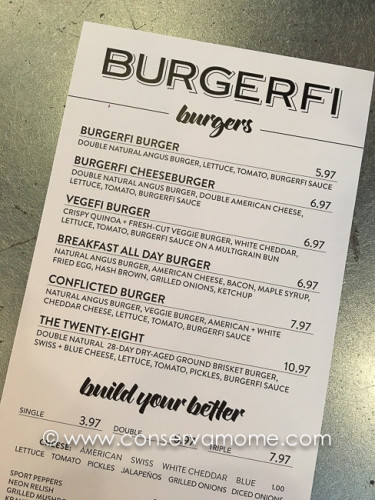 BURGERFI
burgers
BURGERFI BURGER 5.97
DOUBLE NATURAL ANGUS BURGER, LETTUCE, TOMATO, BURGERFI SAUCE
BURGERFI CHEESEBURGER 6.97
DOUBLE NATURAL ANGUS BURGER, DOUBLE AMERICAN CHEESE,
LETTUCE, TOMATO, BURGERFI SAUCE
VEGEFI BURGER 6.97
CRISPY QUINOA + FRESH-CUT VEGGIE BURGER, WHITE CHEDDAR,
LETTUCE, TOMATO, BURGERFI SAUCE ON A MULTIGRAIN BUN
BREAKFAST ALL DAY BURGER 6.97
NATURAL ANGUS BURGER, AMERICAN CHEESE, BACON, MAPLE SYRUP,
FRIED EGG, HASH BROWN, GRILLED ONIONS, KETCHUP
CONFLICTED BURGER 7.97
NATURAL ANGUS BURGER, VEGGIE BURGER, AMERICAN + WHITE
CHEDDAR CHEESE, LETTUCE, TOMATO, BURGERFI SAUCE
THE TWENTY-EIGHT 10.97
DOUBLE NATURAL 28-DAY DRY-AGED GROUND BRISKET BURGER,
SWISS + BLUE CHEESE, LETTUCE, TOMATO, PICKLES, BURGERFI SAUCE
build your better
SINGLE 3.97 DOUBLE TRIPLE 7.97
© www.conservamome.com
CHEESE: AMERICAN SWISS WHITE CHEDDAR BLUE 1.00
LETTUCE TOMATO PICKLES JALAPEÑOS GRILLED ONIONS DICED ONIONS
SPORT PEPPERS
NEON RELISH
GRILLED